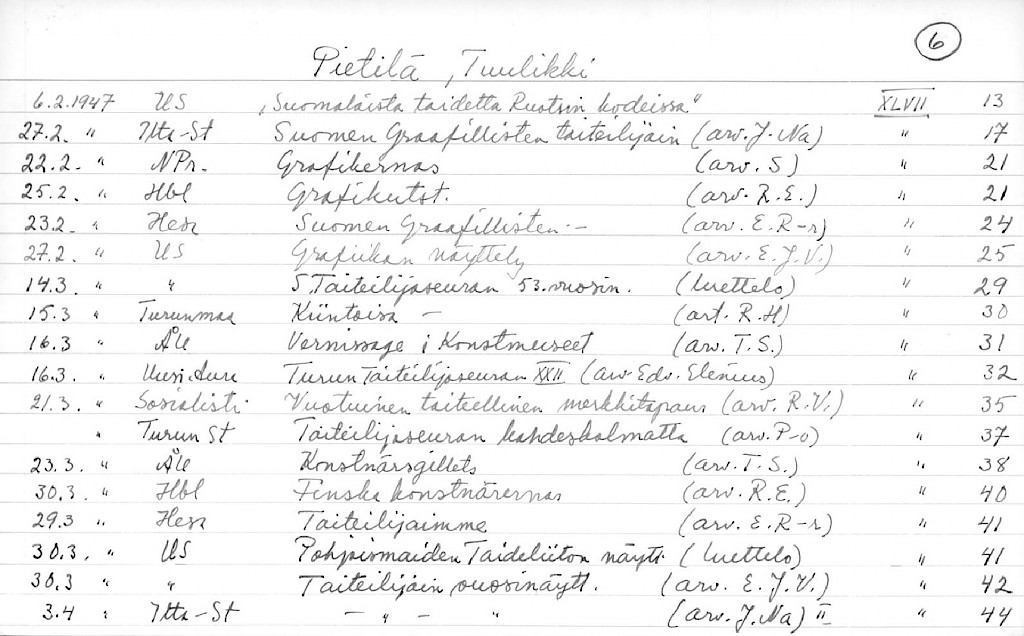 6
Pietilä, Tuulikki
6.2.1947 US „Suomalaista taidetta Ruotsin kodeissa" XLVII 13
27.2. " Ilta-St Suomen Graafillisten taiteilijain (arv. J. Na) " 17
22.2. " NPr. Grafikernas (arv. S) " 21
25.2. " Hbl Grafikutst. (arv. R.E.) " 21
23.2. " Hesa Suomen Graafillisten.— (arv. E.R-r) " 24
27.2. " US Grafiikan näyttely (arv. E.J.V.) " 25
14.3. " " S. Taiteilijaseuran 53. vuosin. (luettelo) " 29
15.3 " Turunmaa Kiintoisa — (art. R.H) " 30
16.3 " ÅU Vernissage i Konstmuseet (arv. T.S.) " 31
16.3. " Uusi Aura Turun Taiteilijaseuran XXII (arv. Edv. Elenius) " 32
21.3. " Sosialisti Vuotuinen taiteellinen merkkitapaus (arv. R.V.) " 35
" Turun St Taiteilijaseuran kahdeskolmatta (arv. P-o) " 37
23.3. " ÅU Konstnärsgillets (arv. T.S.) " 38
30.3. " Hbl Finska konstnärernas (arv. R.E.) " 40
29.3 " Hesa Taiteilijaimme (arv. E.R-r) " 41
30.3. " US Pohjoismaiden Taideliiton näytt. (luettelo) " 41
30.3 " " Taiteilijain vuosinäytt. (arv. E.J.V.) " 42
3.4 " Ilta-St — " — " (arv. J. Na) II " 44